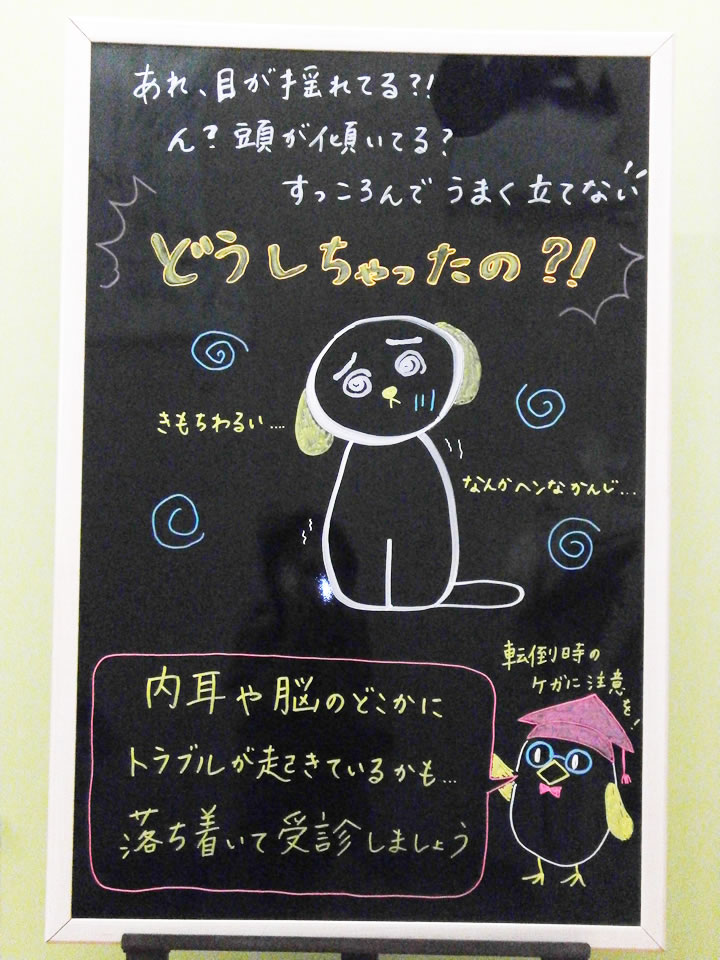 あれ、目が揺れてる?!
ん?頭が傾いてる?
すっころんでうまく立てない
どうしちゃったの?!
きもちわるい....
なんかヘンなかんじ...
転倒時の
ケガに注意
を!
内耳や脳のどこかに
トラブルが起きているかも...
落ち着いて受診しましょう